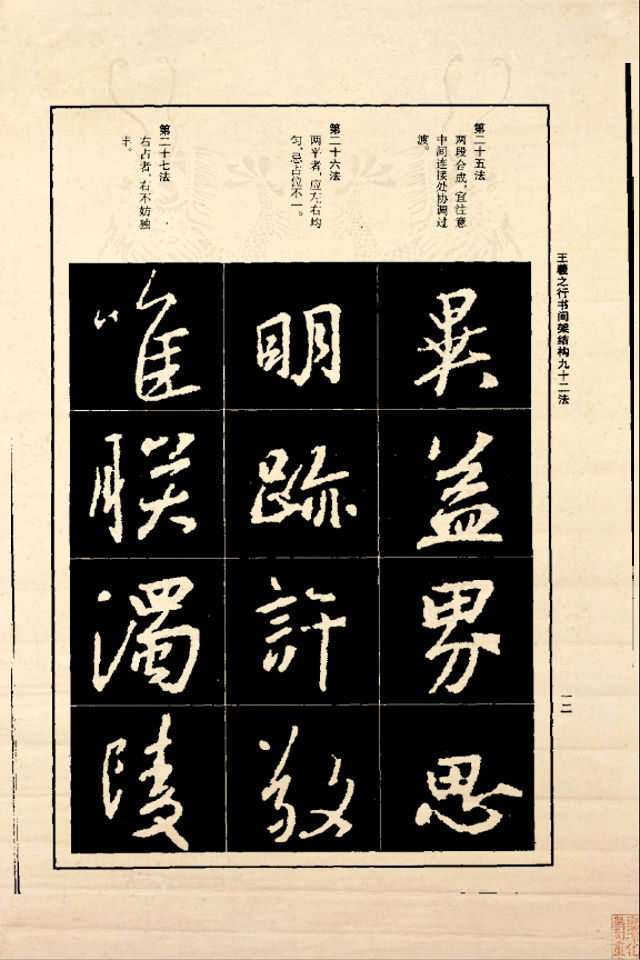 王羲之行书间架结构九十二法
第二十五法
两段合成，宜注意
中间连接处协调过
渡。
第二十六法
两平者，应左右均
匀，忌占位不一。
第二十七法
右占者，右不妨独
丰。
畢
益
界
思
明
跡
許
敬
唯
联
濁
陵
一二